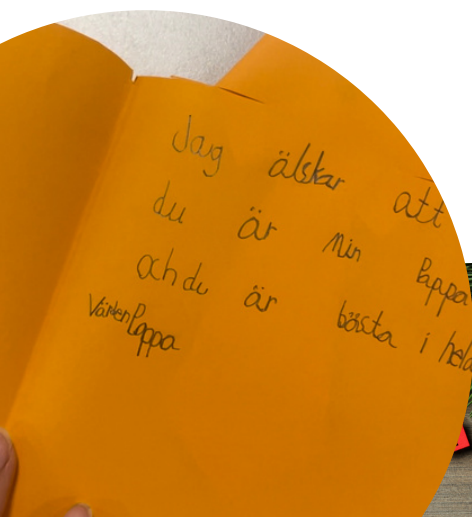 Jag älskar att
du är min Pappa
och du är bästa i hela
Värlen Pappa